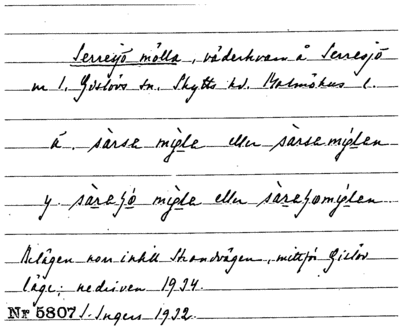 Serresjö mölla, väderkvarn å Serresjö
nr 1. Gislövs sn. Skytts hd. Malmöhus l.
ä. sàrsə mỳlle eller sàrsəmỳllen
y. sàrəʃø mỳlle eller sàrəʃømỳllen
Belägen norr intill Strandvägen, mittför Gislöv
läge; nedriven 1934.
Nr 5807 I. Ingers 1932.